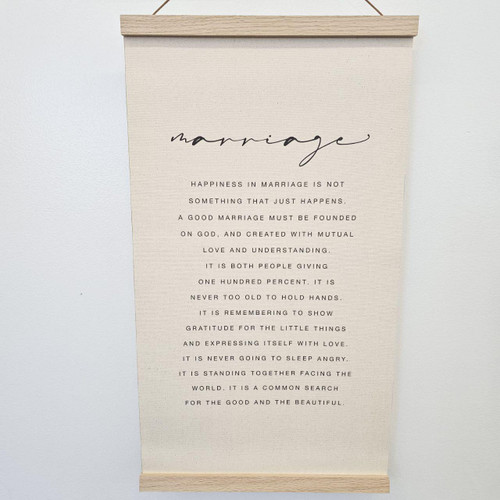 marriage
HAPPINESS IN MARRIAGE IS NOT
SOMETHING THAT JUST HAPPENS.
A GOOD MARRIAGE MUST BE FOUNDED
ON GOD, AND CREATED WITH MUTUAL
LOVE AND UNDERSTANDING.
IT IS BOTH PEOPLE GIVING
ONE HUNDRED PERCENT. IT IS
NEVER TOO OLD TO HOLD HANDS.
IT IS REMEMBERING TO SHOW
GRATITUDE FOR THE LITTLE THINGS
AND EXPRESSING ITSELF WITH LOVE.
IT IS NEVER GOING TO SLEEP ANGRY.
IT IS STANDING TOGETHER FACING THE
WORLD. IT IS A COMMON SEARCH
FOR THE GOOD AND THE BEAUTIFUL.